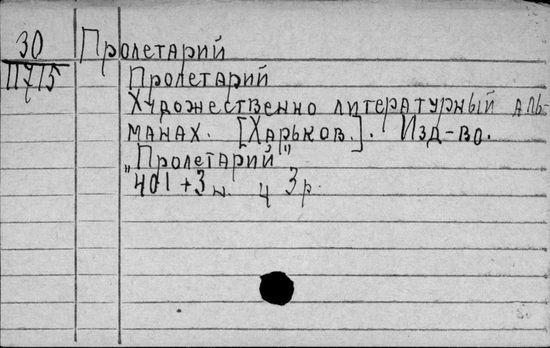 30 Пролетарий
П715 Пролетарий
Художественно литературный аль-
манах. [Харьков.]. Изд-во.
"Пролетарий"
401 + 3 н. ц 3 р.